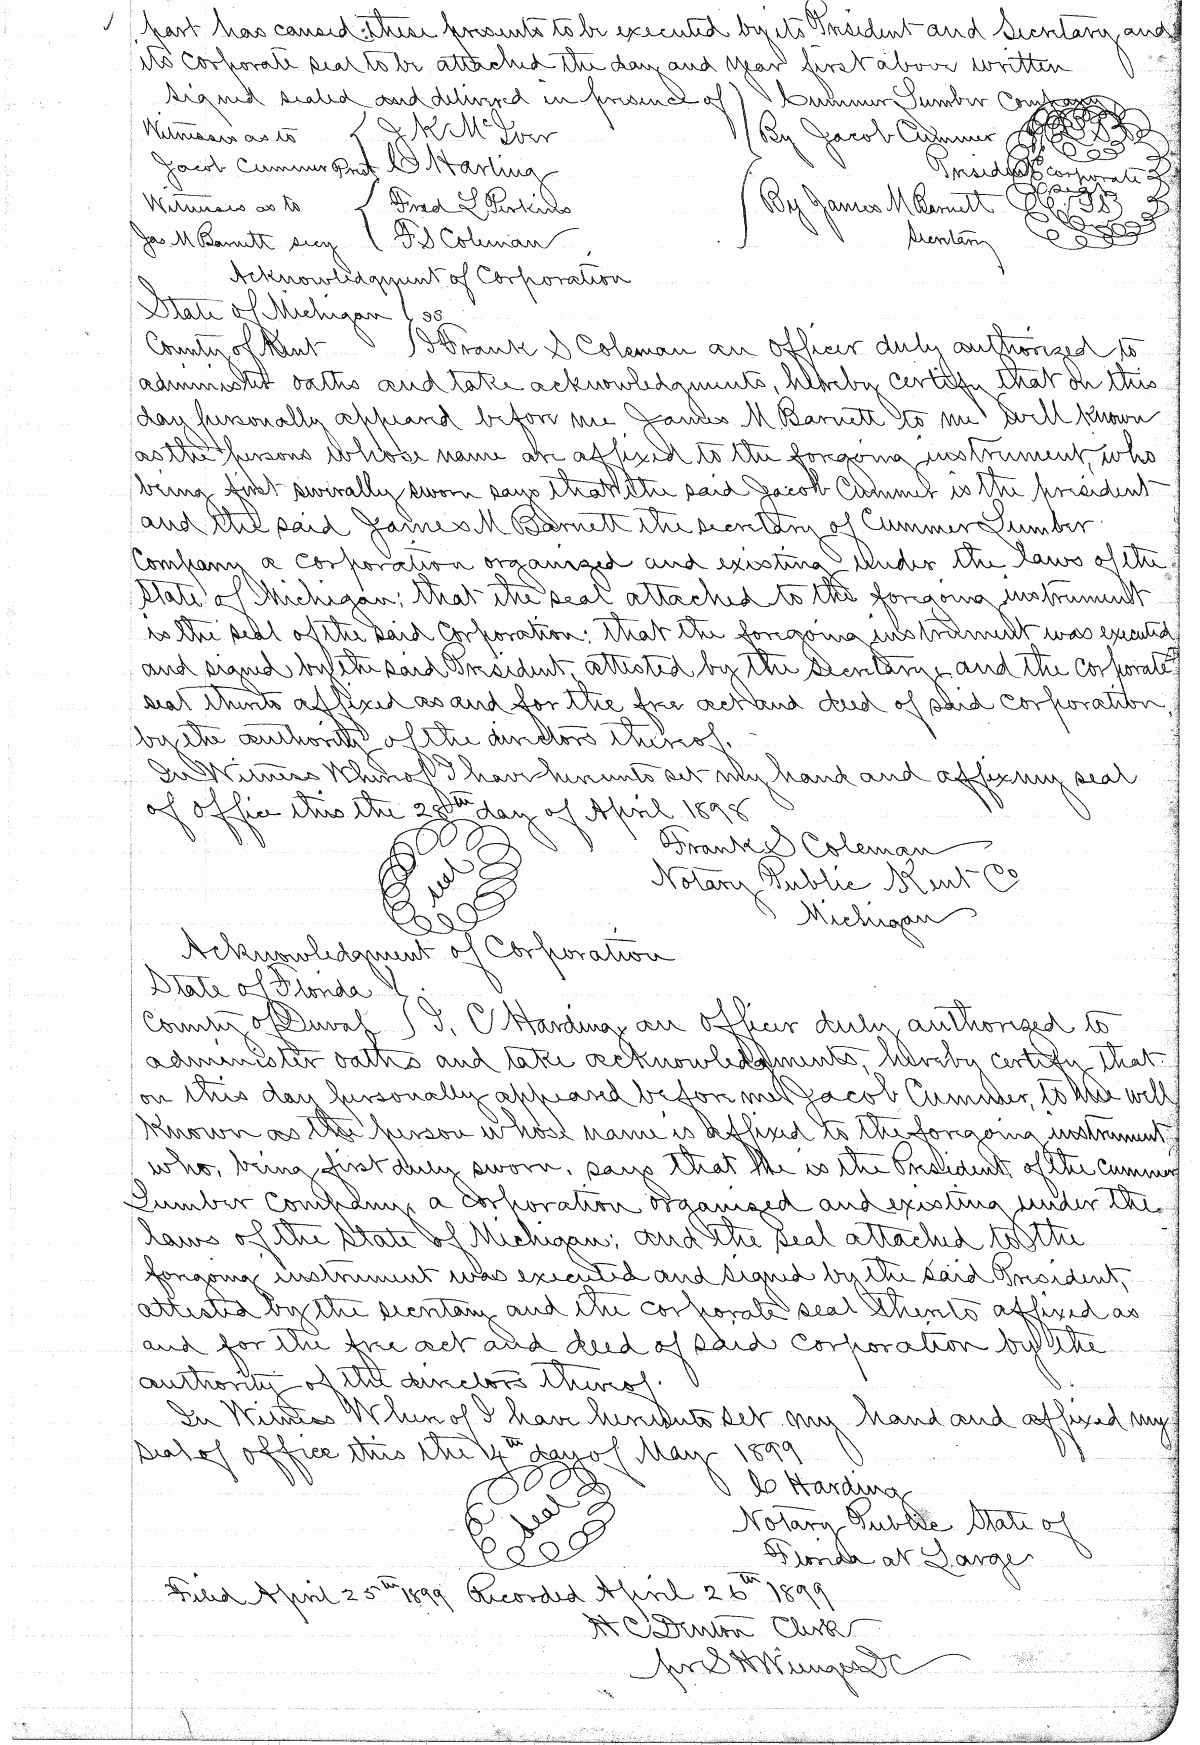 part has caused these presents to be executed by its President and Secretary and
its corporate seal to be attached the day and year first above written
Signed sealed and delivered in presence of ) Cummer Lumber Company
Witnesses as to { J K McIver ) By Jacob Cummer
Jacob Cummer Prst { C Harling President Corporate Seal
Witnesses as to { Fred L Perkins { By James M Barnett
Jas M Barnett secy { F S Coleman Secretary
Acknowledgment of Corporation
State of Michigan } ss
County of Kent } I Frank S Coleman an officer duly authorized to
administer oaths and take acknowledgments, hereby certify that on this
day personally appeared before me James M Barnett to me well known
as the persons whose name are affixed to the forgoing instrument, who
being first swirally sworn says that the said Jacob Cummer is the president
and the said James M Barnett the secretary of Cummer Lumber
Company a corporation organized and existing under the laws of the
State of Michigan; that the seal attached to the foregoing instrument
is the seal of the said corporation; that the foregoing instrument was executed
and signed by the said President, attested by the Secretary, and the corporate
seal thereto affixed as and for the free act and deed of said corporation,
by the authority of the directors thereof.
In Witness Whereof I have hereunto set my hand and affix my seal
of office this the 28th day of April 1898
Frank S Coleman
seal Notary Public Kent Co
Michigan
Acknowledgment of Corporation
State of Florida }
County of Duval } I, C Harding, an officer duly authorized to
administer oaths and take acknowledgments, hereby certify that
on this day personally appeared before me Jacob Cummer, to me well
known as the person whose name is affixed to the forgoing instrument
who, being first duly sworn, says that he is the President of the Cummer
Lumber Company, a corporation organized and existing under the
laws of the State of Michigan; and the seal attached to the
forgoing instrument was executed and signed by the said President,
attested by the secretary and the corporate seal thereto affixed as
and for the free act and deed of said corporation by the
authority of the directors thereof.
In Witness Whereof I have hereunto set my hand and affixed my
seal of office this the 4th day of May 1899
C Harding
seal Notary Public State of
Florida at Large
Filed April 25th 1899 Recorded April 26th 1899
H C Denton Clerk
pr S H Wienges DC